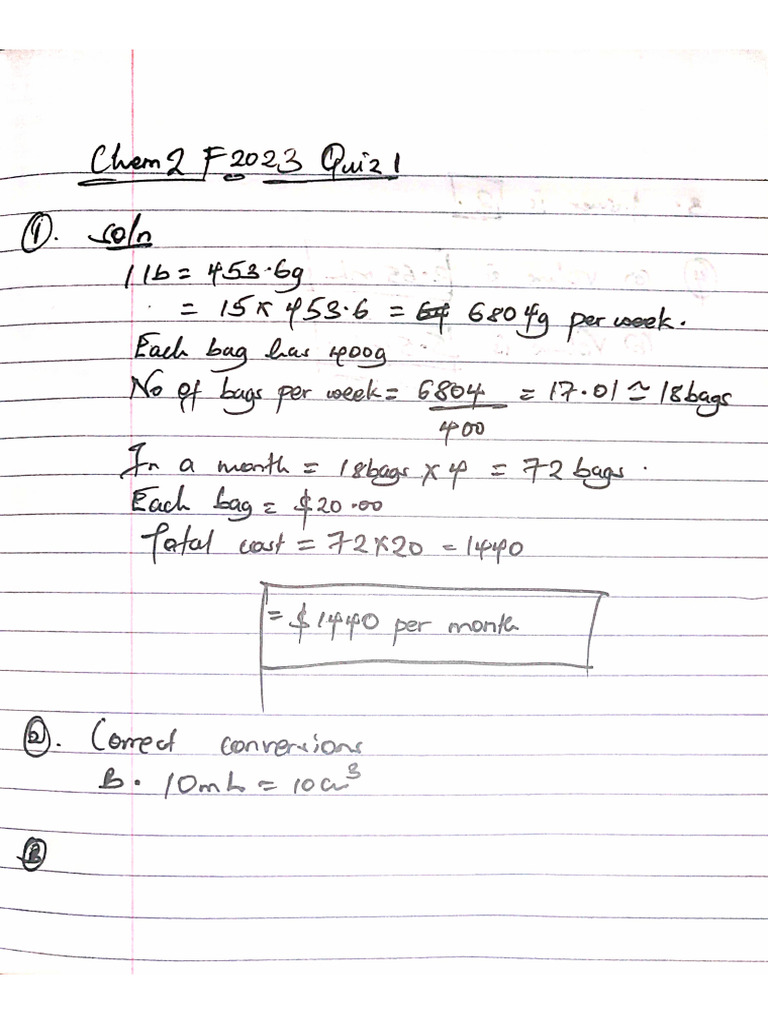 Chem 2 F2023 Quiz 1
①. soln
1 lb = 453.6g
= 15 x 453.6 = 6804g per week.
Each bag has 400g
No of bags per week = 6804/400 = 17.01 ≃ 18bags
In a month = 18bags x 4 = 72 bags.
Each bag = $20.00
Total cost = 72x20 = 1440
= $1440 per month
②. Correct conversions
B. 10mL = 10cm³